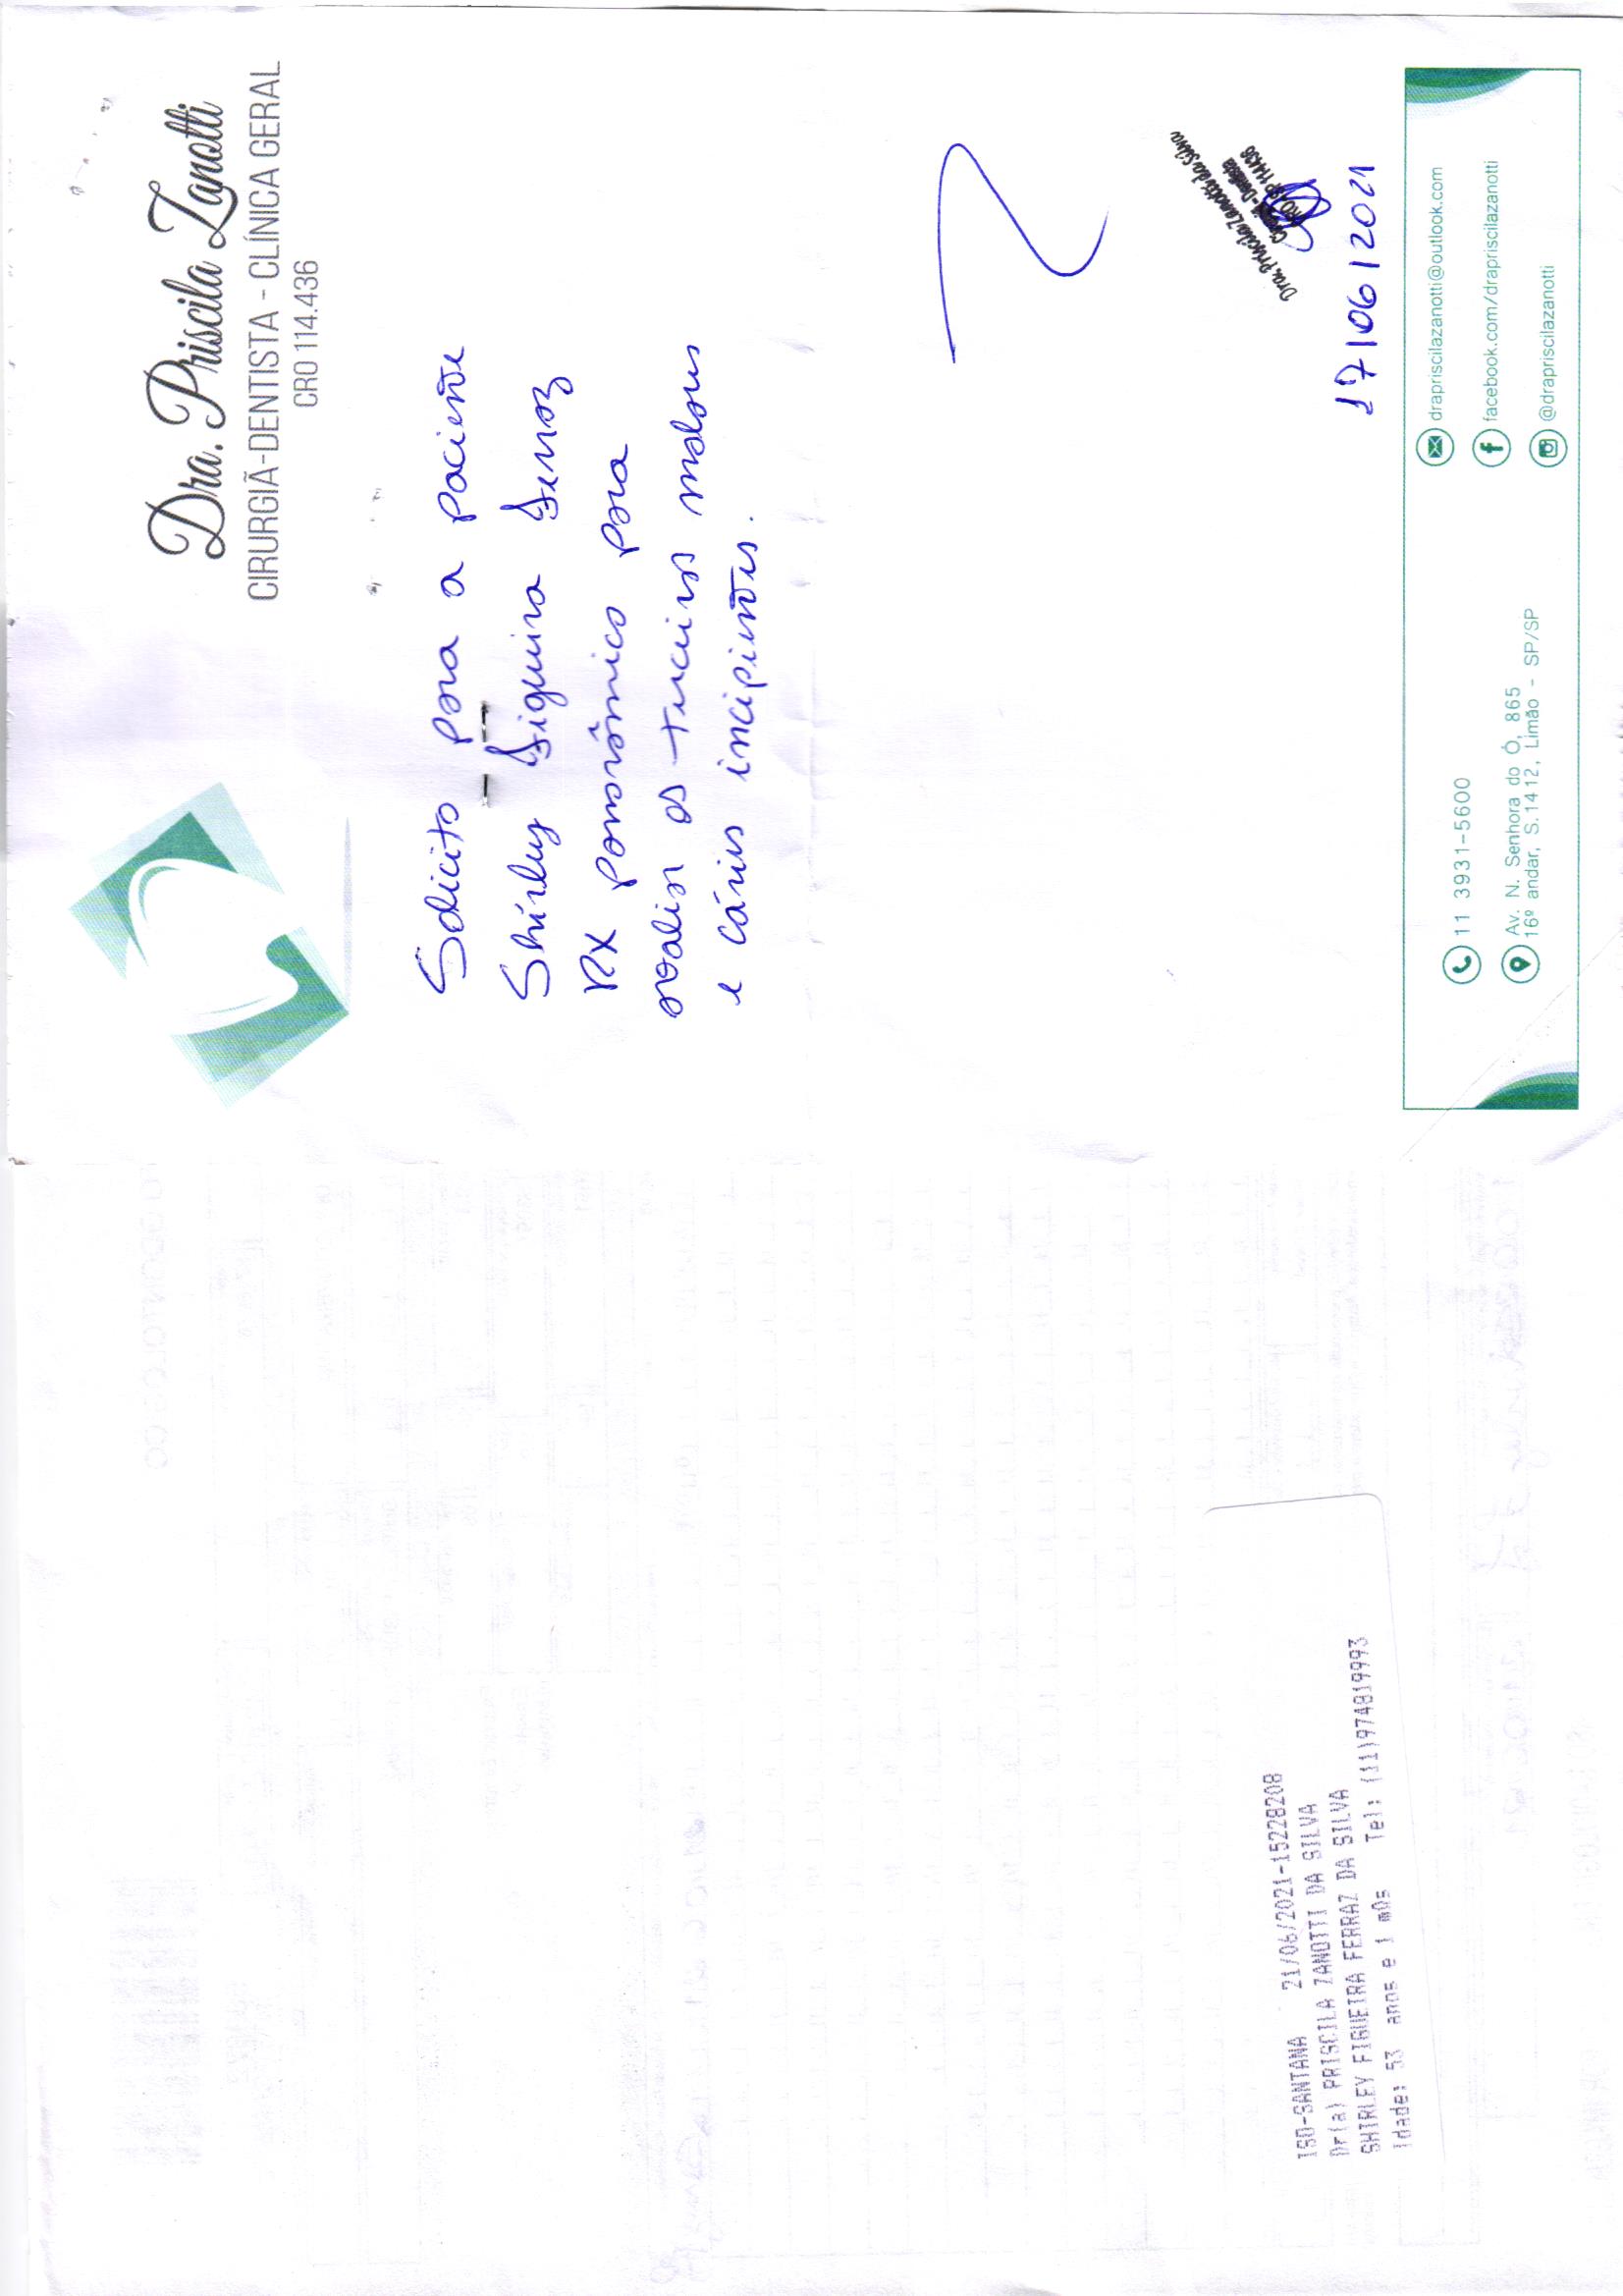 Dra. Priscila Zanotti
CIRURGIÃ-DENTISTA - CLÍNICA GERAL
CRO 114.436
Solicito para a paciente
Shirley Figueira Ferraz
RX panorâmico para
avaliar os terceiros molares
e cáries incipientes.
Dra. Priscila Zanotti da Silva
Cirurgiã - Dentista
CRO SP 114436
17/06/2021
11 3931-5600
Av. N. Senhora do Ó, 865
16º andar, S. 1412, Limão - SP/SP
drapriscilazanotti@outlook.com
facebook.com/drapriscilazanotti
@drapriscilazanotti
ISO-SANTANA 21/06/2021-15228208
Dr(a) PRISCILA ZANOTTI DA SILVA
SHIRLEY FIGUEIRA FERRAZ DA SILVA
Idade: 53 anos e 1 mês Tel: (11)974819993